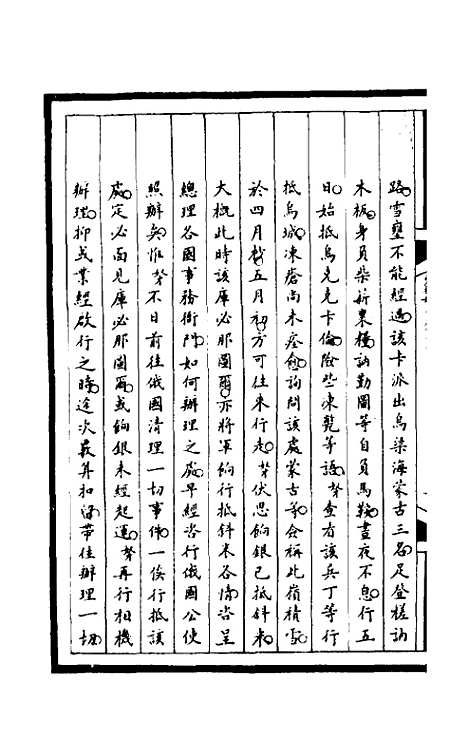 路。雪壅不能經過。該卡派出烏梁海蒙古三名。足登槎訥
木板。身負柴薪。裹糧。訥勤圖等自負馬鞍。晝夜不息。行五
日。始抵烏克克卡倫。險些凍斃等語。孥查看該兵丁等行
抵烏城。凍瘡尚未痊愈。詢問該處蒙古等。僉稱此嶺積雪。
於四月杪五月初。方可往來行走。孥伏思餉銀已抵斜米。
大概此時該庫必那圖爾。亦將軍餉行抵斜米各情。咨呈
總理各國事務衙門。如何辦理之處。早經咨行俄國公使
照辦矣。惟孥不日前往俄國清理一切事件。一俟行抵該
處。定必面見庫必那圖爾。或餉銀未經起運。孥再行相機
辦理。抑或業經啟行之時。途次截算扣留。帶往辦理一切。